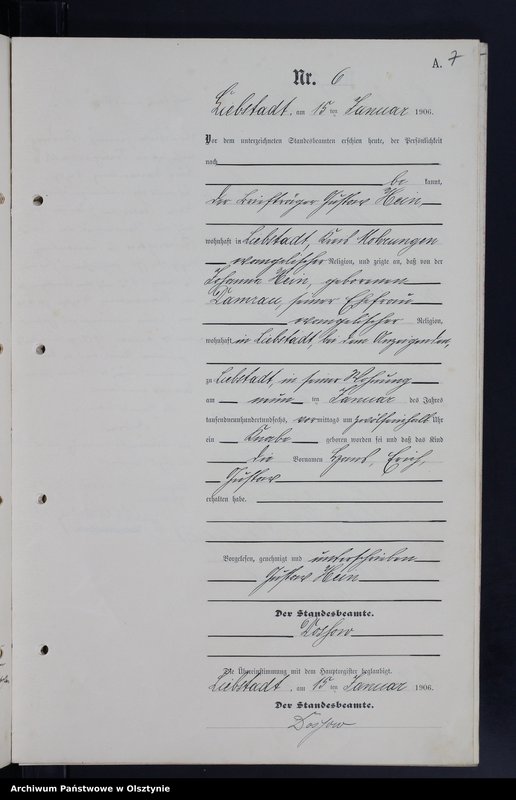 A. 7
Nr. 6
Liebstadt, am 15 ten Januar 1906.
Vor dem unterzeichneten Standesbeamten erschien heute, der Persönlichkeit
nach
be kannt,
der Briefträger Gustav Hein
wohnhaft in Liebstadt, Kreis Mohrungen
evangelischer Religion, und zeigte an, daß von der
Johanna Hein, geborenen
Damrau, seiner Ehefrau
evangelischer Religion,
wohnhaft in Liebstadt, bei dem Anzeigenden,
zu Liebstadt, in seiner Wohnung
am neun ten Januar des Jahres
tausendneunhundertundsechs, vormittags um zwölfeinhalb Uhr
ein Knabe geboren worden sei und daß das Kind
die Vornamen Hans, Erich,
Gustav
erhalten habe.
Vorgelesen, genehmigt und unterschrieben
Gustav Hein
Der Standesbeamte.
Die Übereinstimmung mit dem Hauptregister beglaubigt.
Liebstadt, am 15 ten Januar 1906.
Der Standesbeamte.
Archiwum Państwowe w Olsztynie